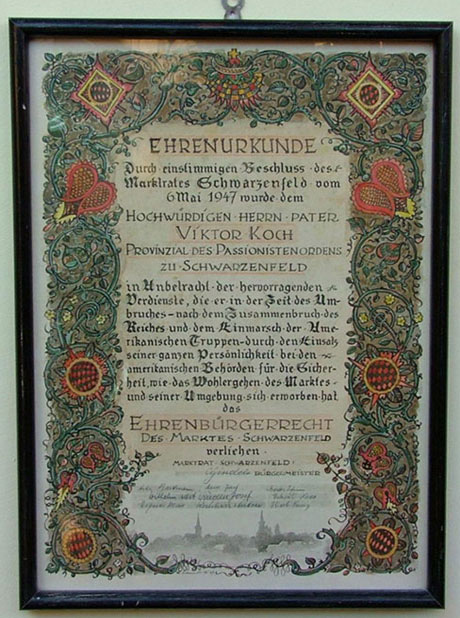 EHRENURKUNDE
Durch einstimmigen Beschluss des
Marktrates Schwarzenfeld vom
6 Mai 1947 wurde dem
HOCHWÜRDIGEN HERRN PATER
VIKTOR KOCH
PROVINZIAL DES PASSIONISTENORDENS
ZU SCHWARZENFELD
in Anbetracht der hervorragenden
Verdienste, die er in der Zeit des Um-
bruches - nach dem Zusammenbruch des
Reiches und dem Einmarsch der Ame-
rikanischen Truppen - durch den Einsatz
seiner ganzen Persönlichkeit bei den
amerikanischen Behörden für die Sicher-
heit, wie das Wohlergehen des Marktes
und seiner Umgebung sich erworben hat
das
EHRENBÜRGERRECHT
DES MARKTES SCHWARZENFELD
verliehen.
MARKTRAT SCHWARZENFELD:
BÜRGERMEISTER